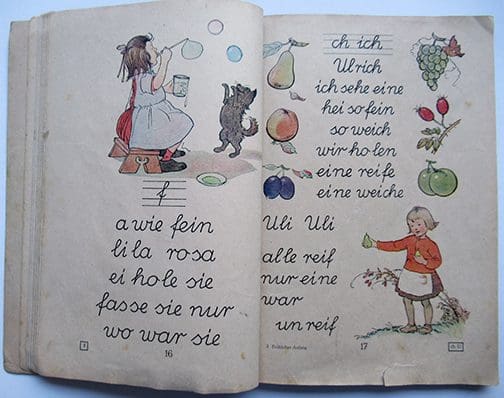 f
a wie fein
lila rosa
ei hole sie
fasse sie nur
wo war sie
f
16
ch ich
Ulrich
ich sehe eine
hei so fein
so weich
wir holen
eine reife
eine weiche
Uli Uli
alle reif
nur eine
war
unreif
17